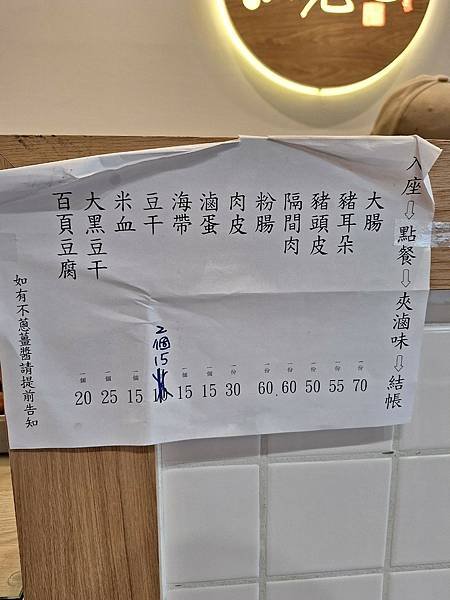 入座⇨點餐⇨夾滷味⇨結帳
大腸 一份 70
豬耳朵 一份 55
豬頭皮 一份 50
隔間肉 一份 60
粉腸 一份 60
肉皮 一份 30
滷蛋 一個 15
海帶 一個 15
豆干 2個15
米血 一個 15
大黑豆干 一個 25
百頁豆腐 一個 20
如有不蔥薑醬請提前告知